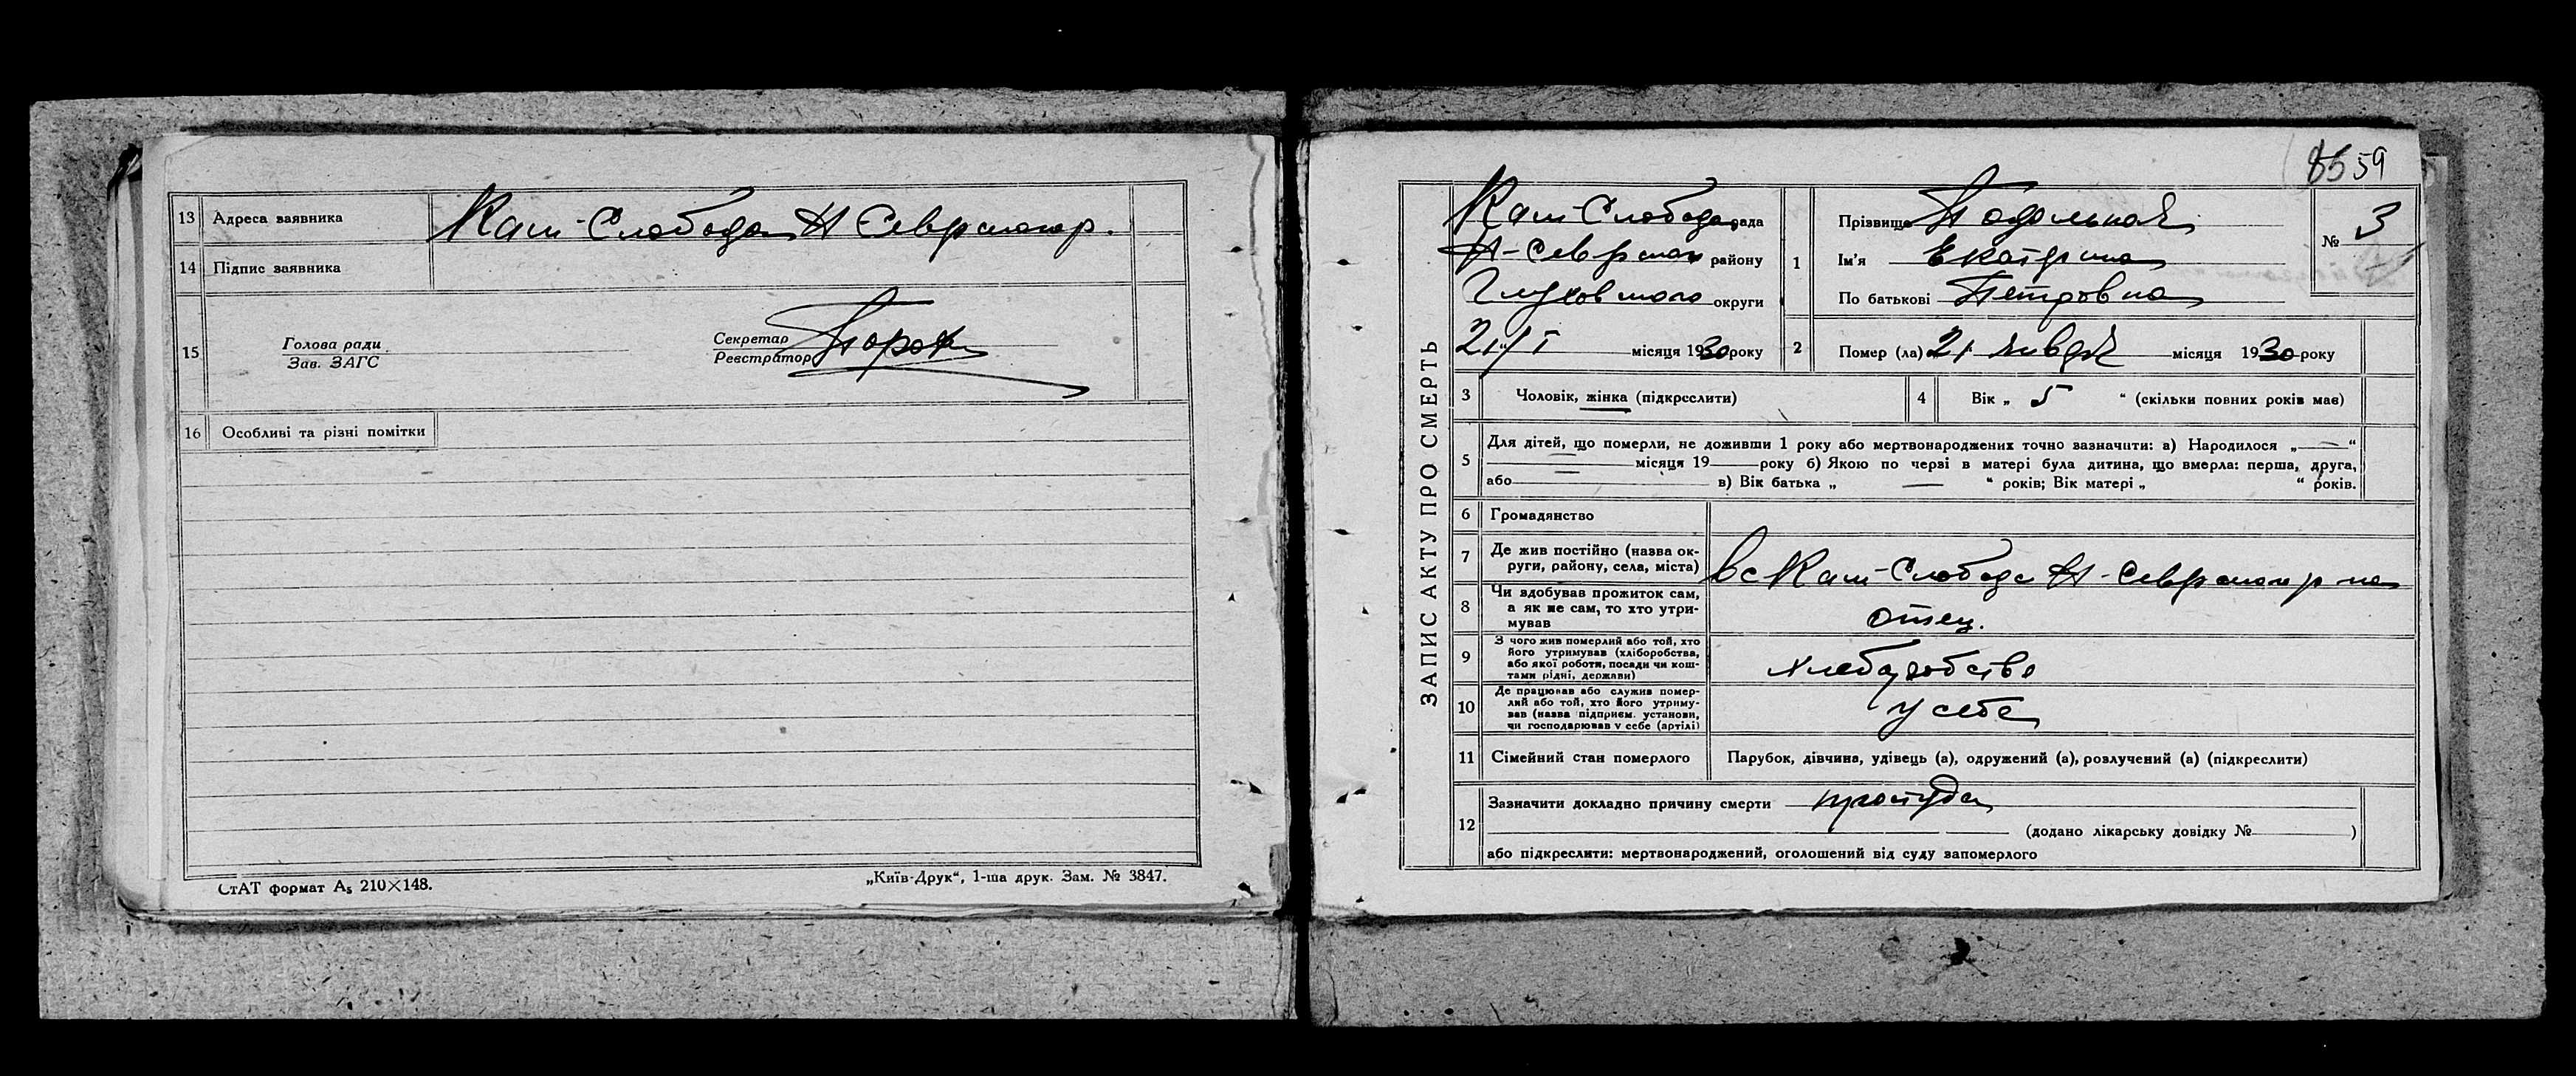 13 Адреса заявника Кам-Слобода Н Севрского р.
14 Підпис заявника
15 Голова ради
Зав. ЗАГС
Секретар
Реєстратор
16 Особливі та різні помітки
СтАТ формат А₅ 210×148.
„Київ-Друк“, 1-ша друк. Зам. № 3847.
59
ЗАПИС АКТУ ПРО СМЕРТЬ
Кам-Слобода рада
Н-Северского району
Глуховского округи
21/I місяця 1930 року
1 Прізвище Подольная
Ім'я Екатерина
По батькові Петровна
№ 3
2 Помер (ла) 21 января місяця 1930 року
3 Чоловік, жінка (підкреслити)
4 Вік „ 5 “ (скільки повних років має)
5 Для дітей, що померли, не доживши 1 року або мертвонароджених точно зазначити: а) Народилося „ — “
місяця 19 року б) Якою по черзі в матері була дитина, що вмерла: перша, друга,
або в) Вік батька „ — “ років; Вік матері „ “ років.
6 Громадянство
7 Де жив постійно (назва ок-
руги, району, села, міста)
в с Кам-Слобода Н-Северского р на
8 Чи здобував прожиток сам,
а як не сам, то хто утри-
мував
отец.
9 З чого жив померлий або той, хто
його утримував (хліборобства,
або якої роботи, посади чи кош-
тами рідні, держави)
хлеборобство
10 Де працював або служив помер-
лий або той, хто його утриму-
вав (назва підприєм. установи,
чи господарював у себе (артілі)
у себе
11 Сімейний стан померлого Парубок, дівчина, удівець (а), одружений (а), розлучений (а) (підкреслити)
12 Зазначити докладно причину смерти простуда
(додано лікарську довідку № )
або підкреслити: мертвонароджений, оголошений від суду запомерлого